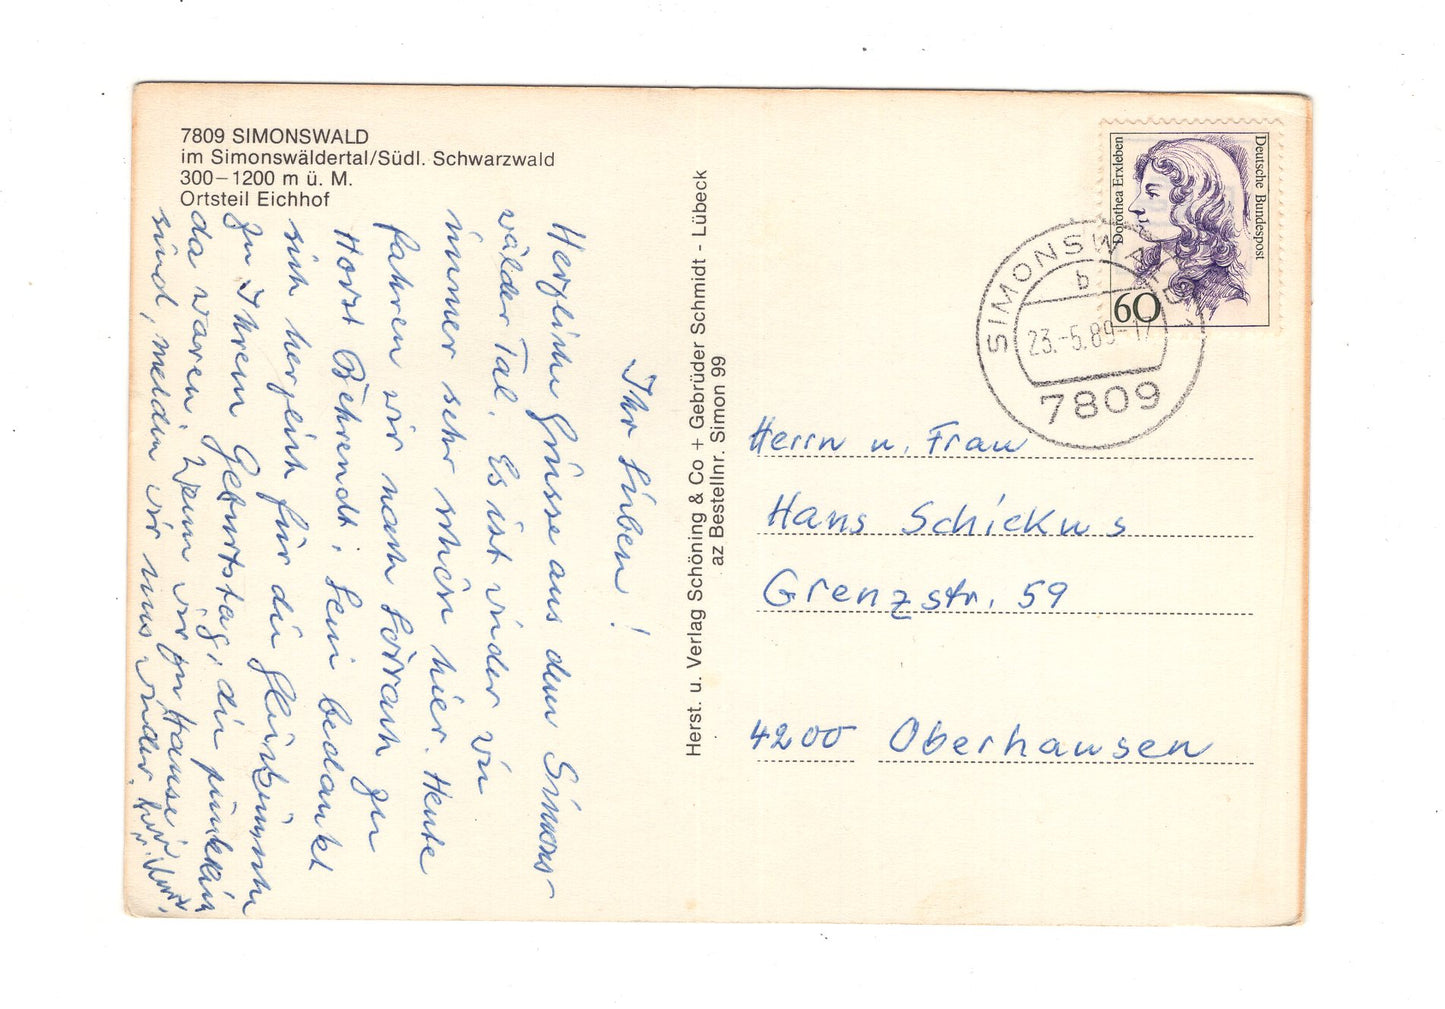 7809 SIMONSWALD
im Simonswäldertal/Südl. Schwarzwald
300–1200 m ü. M.
Ortsteil Eichhof
Ihr Lieben!
Herzliche Grüsse aus dem Simons-
wälder Tal. Es ist wieder
immer sehr schön hier. Heute
fahren wir nach Lörrach zu
Horst Behrendt. Leni bedankt
sich herzlich für die Glückwünsche
zu Ihrem Geburtstag, die pünktlich
da waren. Wenn wir zu Hause
sind, melden wir uns wieder.
Herst. u. Verlag Schöning & Co + Gebrüder Schmidt - Lübeck
az Bestellnr. Simon 99
Deutsche Bundespost
Dorothea Erxleben
60
SIMONSWALD 1
b
23.-5.89-17
7809
Herrn u. Frau
Hans Schickus
Grenzstr. 59
4200 Oberhausen